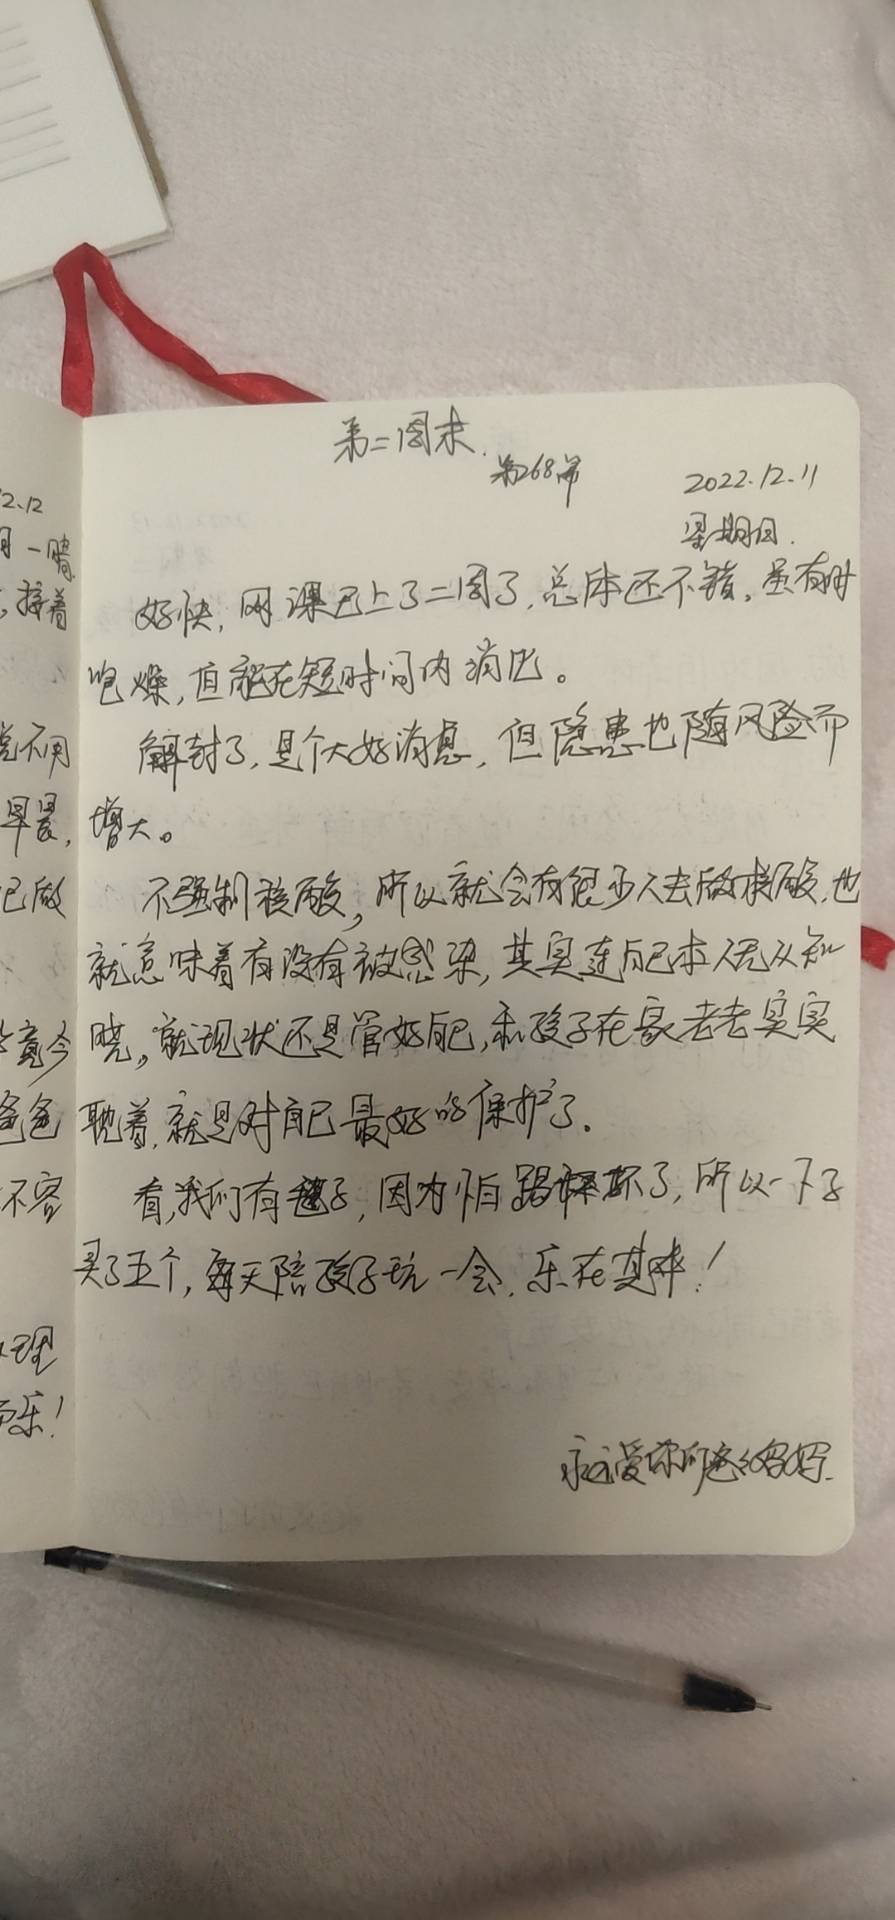 第二周末.
第268篇
2022.12.11
星期日.
好快,网课已上了二周了,总体还不错,虽有时
咆燥,但能在短时间内消化。
解封了,是个大好消息,但隐患也随风险而
增大。
不强制核酸,所以就会有很少人去做核酸,也
就意味着有没有被感染,其实连自己本人无从知
晓,就现状还是管好自己,和孩子在家老老实实
耽着,就是对自己最好的保护了.
看,我们有毽子,因为怕踢坏了,所以一下子
买了五个,每天陪孩子玩一会,乐在其中!
永远爱你的爸爸妈妈.
2.12
一晴
,接着
不用
早晨,
已做
竟今
爸爸
不容
理
乐!